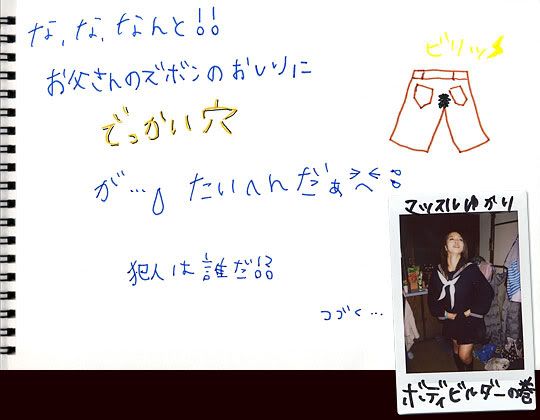 な、な、なんと!!
ビリッ
お父さんのズボンのおしりに
でっかい穴
が…。たいへんだぁ
マッスルゆかり
犯人は誰だ!?
つづく…
ボディビルダーの巻